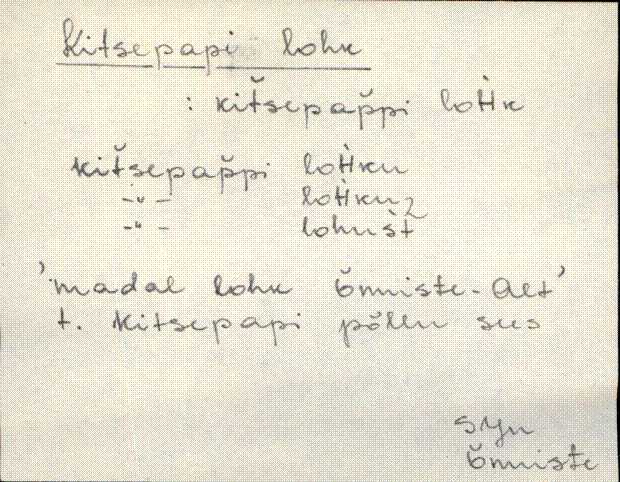 Kitsepapi lohk
: kiťsepap̌pi loH̀k
kiťsepap̌pi loH̀ku
-"- loH̀ku2
-"- lohušt
'madal lohk õmniste-alt'
t. Kitsepapi põllu sees
syn
õmniste